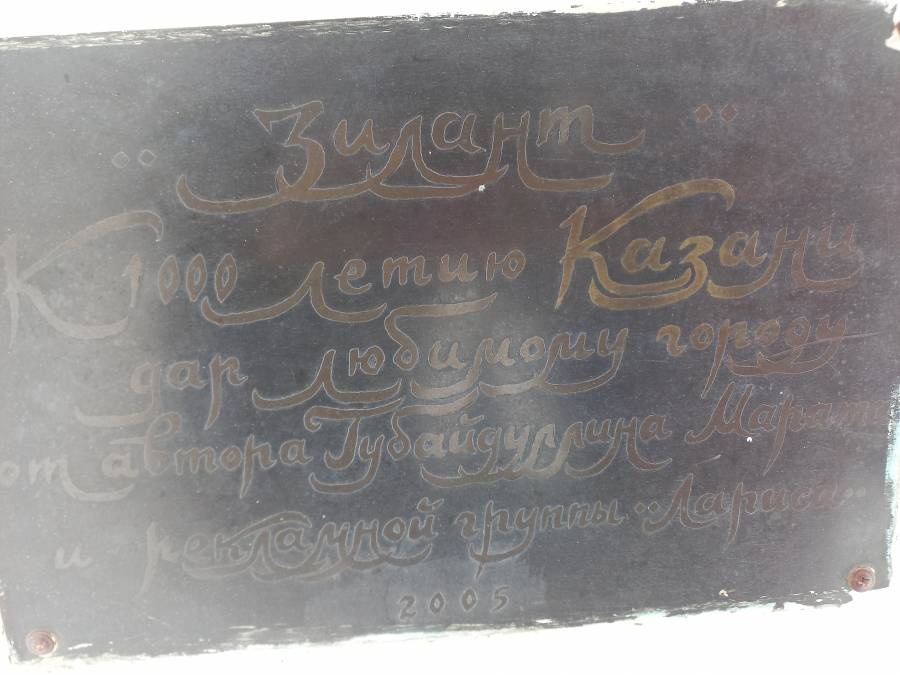 "Зилант"
К 1000 летию Казани
дар любимому городу
от автора Губайдуллина Марата
и рекламной группы "Лариса"
2005